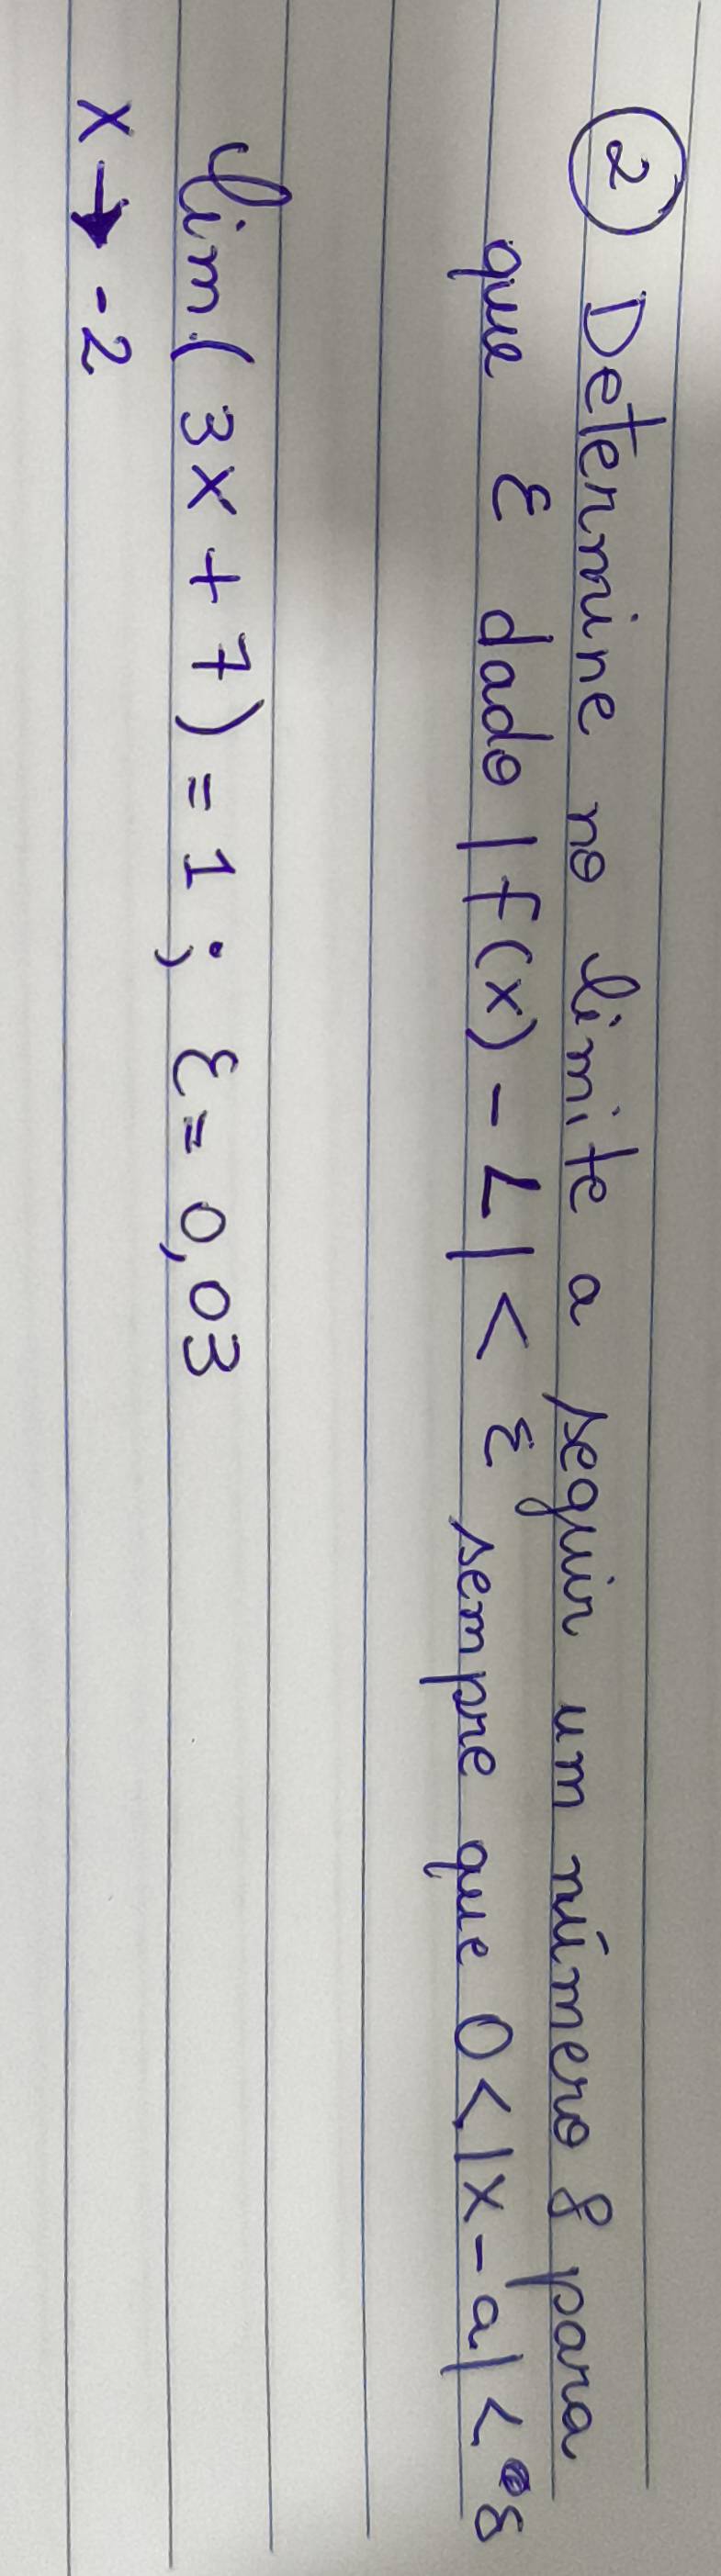 2 Determine no limite a seguir um número δ para
que ε dado |f(x) - L| < ε sempre que 0 < |x - a| < δ
lim (3x + 7) = 1; ε = 0,03
x → -2